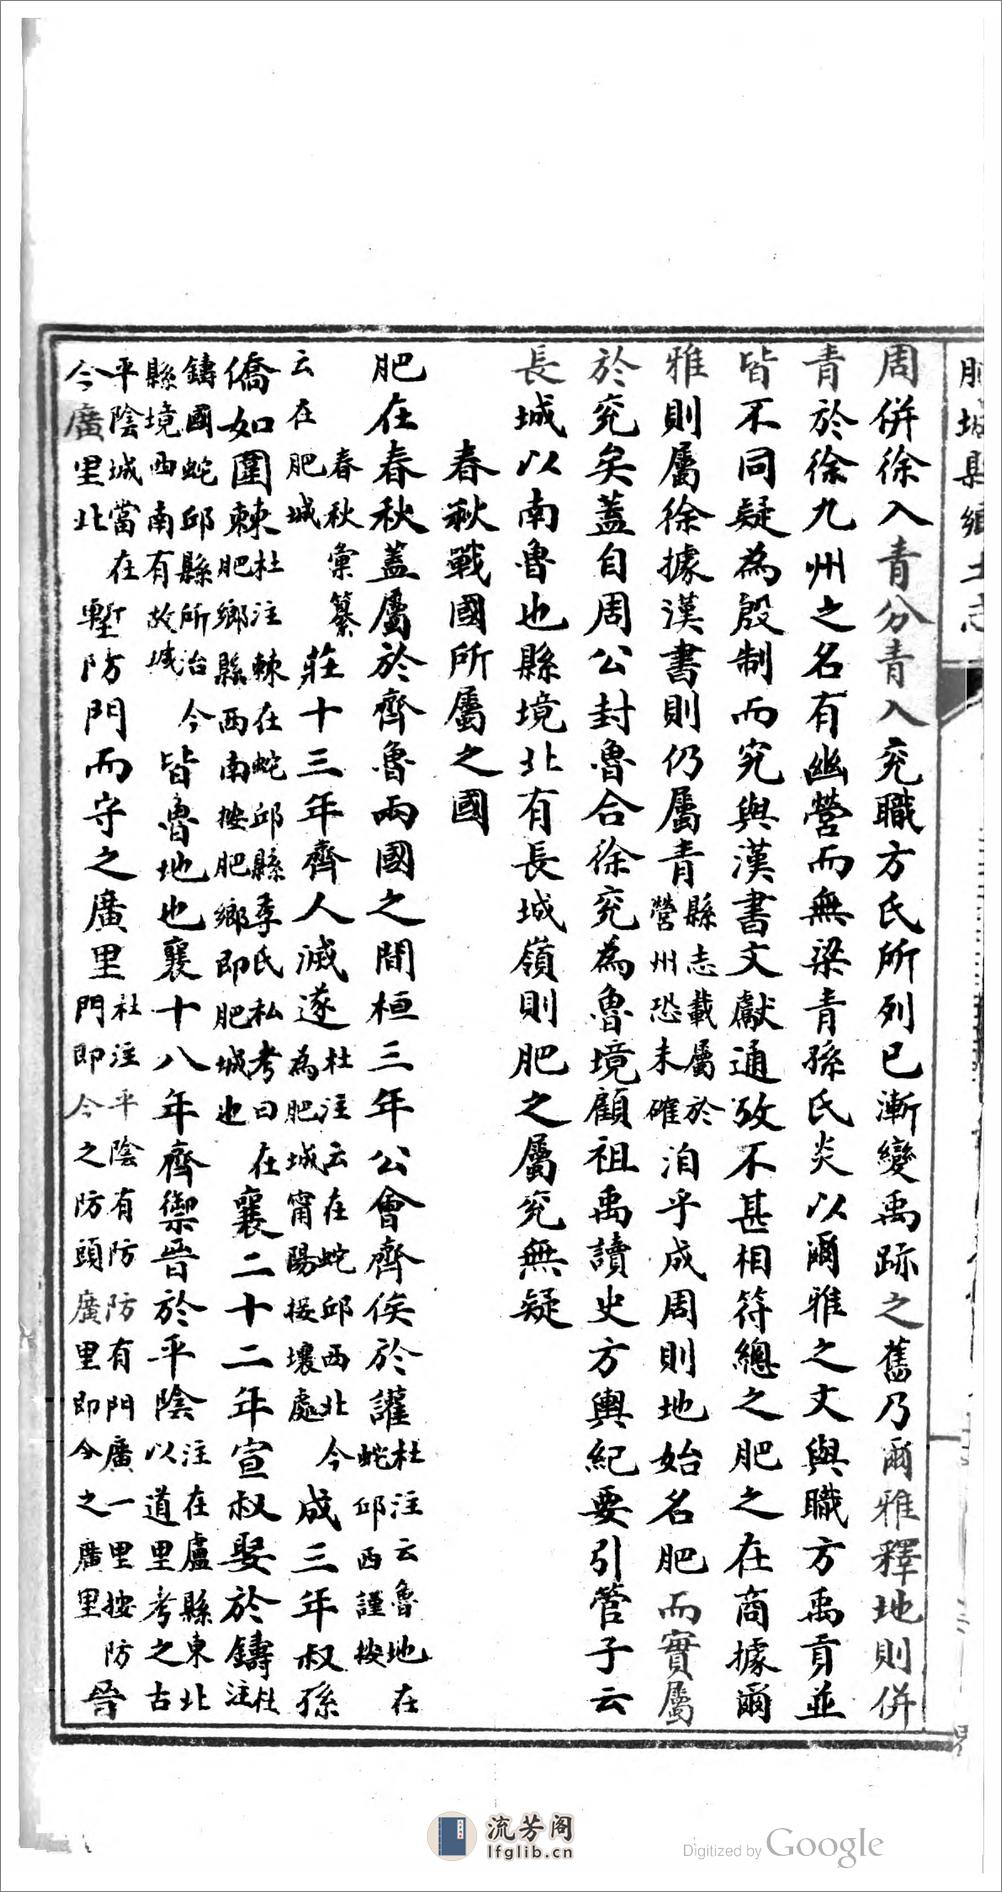 肥城縣鄉土志
周併徐入青分青入兖職方氏所列已漸變禹跡之舊乃爾雅釋地則併
青於徐九州之名有幽營而無梁青孫氏炎以爾雅之文與職方禹貢並
皆不同疑為殷制而究與漢書文獻通攷不甚相符總之肥之在商據爾
雅則屬徐據漢書則仍屬青縣志載屬於營州恐未確洎乎成周則地始名肥而實屬
於兖矣蓋自周公封魯合徐兖為魯境顧祖禹讀史方輿紀要引管子云
長城以南魯也縣境北有長城嶺則肥之屬兖無疑
春秋戰國所屬之國
肥在春秋蓋屬於齊魯兩國之間桓三年公會齊侯於讙杜注云魯地在蛇邱西謹按在
云在肥城春秋彙纂莊十三年齊人滅遂杜注云在蛇邱西北今為肥城甯陽接壤處成三年叔孫
僑如圍棘杜注棘在蛇邱縣季氏私考曰在肥鄉縣西南按肥鄉即肥城也襄二十二年宣叔娶於鑄杜注
鑄國蛇邱縣所治今縣境西南有故城皆魯地也襄十八年齊禦晉於平陰注在盧縣東北以道里考之古
平陰城當在今廣里北塹防門而守之廣里杜注平陰有防防有門廣一里按防門即今之防頭廣里即今之廣里晉
流芳阁
lfglib.cn
Digitized by Google